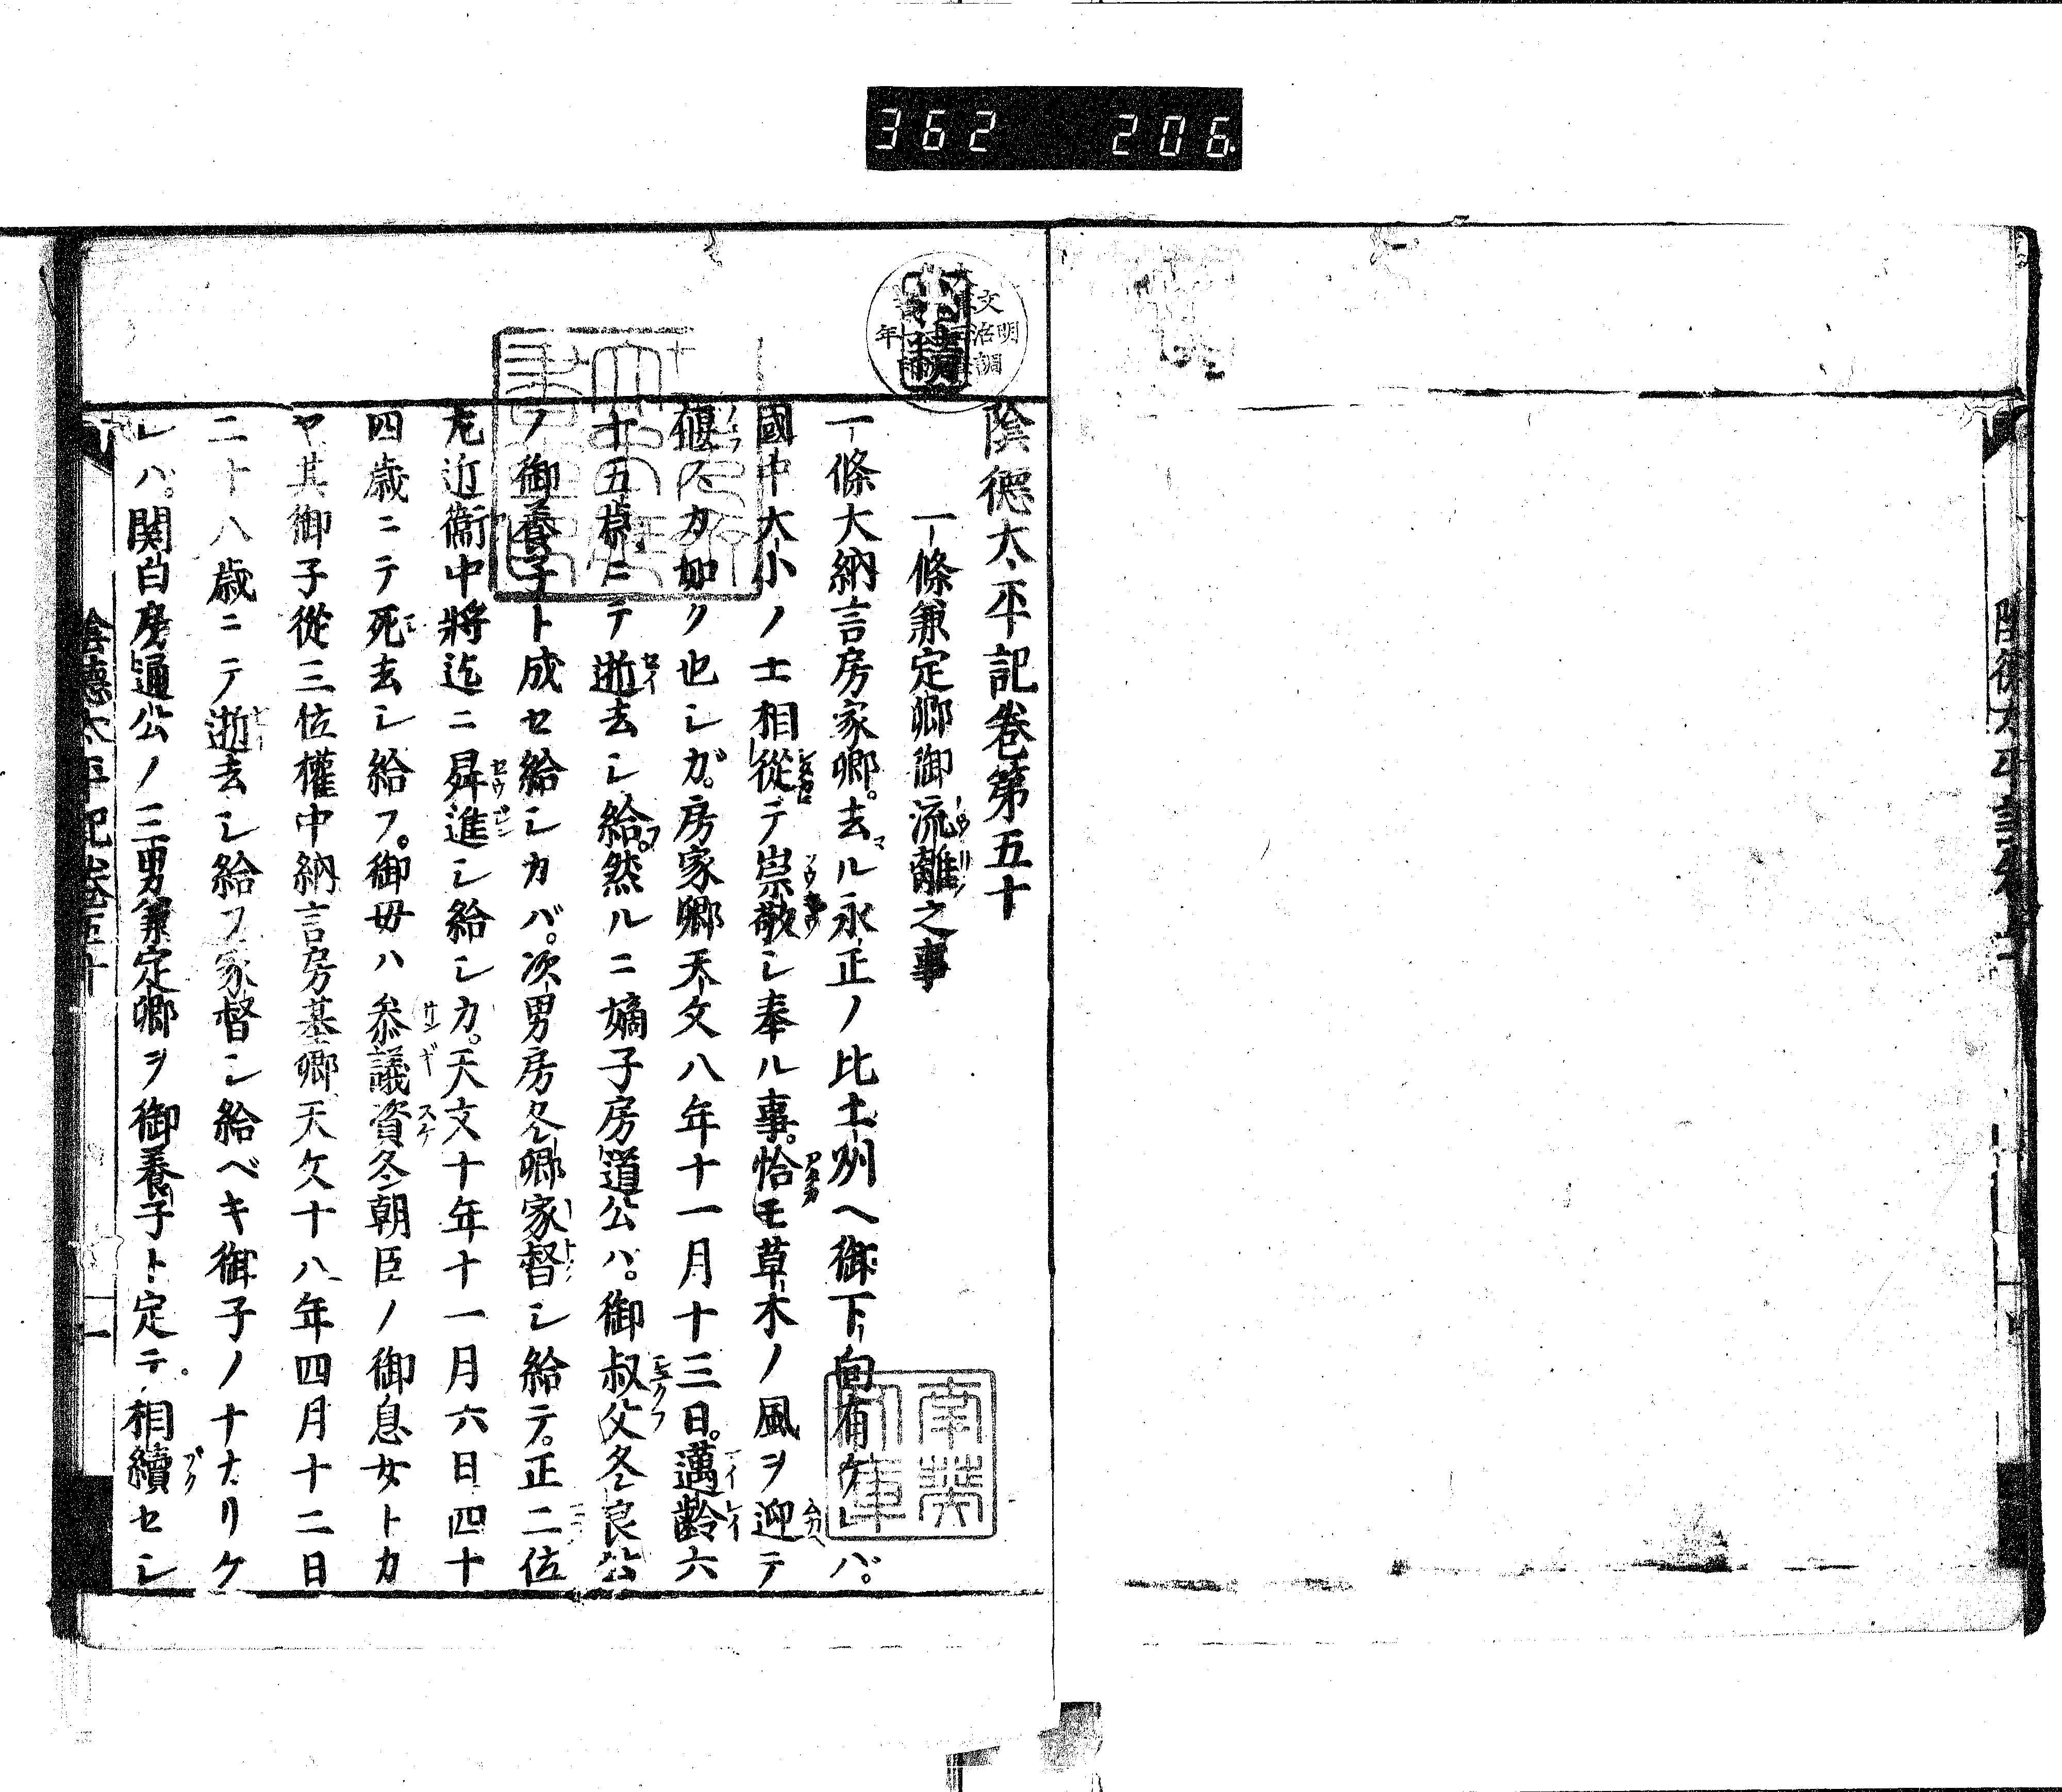 362 206
陰徳太平記巻第五十
一條兼定卿御流離之事
一條大納言房家卿。去ル永正ノ比土州ヘ御下向有ケレバ。
國中大小ノ士相從テ崇敬シ奉ル事。恰モ草木ノ風ヲ迎テ
偃スカ如ク也シガ。房家卿天文八年十一月十三日。邁齢六
十五歳ニテ逝去シ給フ。然ルニ嫡子房道公ハ。御叔父冬良公
ノ御養子ト成セ給シカバ。次男房冬卿家督シ給テ。正二位
左近衞中將迄ニ昇進シ給シカ。天文十年十一月六日四十
四歳ニテ死去シ給フ。御母ハ参議資冬朝臣ノ御息女トカ
ヤ其御子從三位權中納言房基卿天文十八年四月十二日
二十八歳ニテ逝去シ給フ家督シ給ベキ御子ノナナリケ
レバ。関白房通公ノ三男兼定卿ヲ御養子ト定テ相續セシ
陰徳太平記巻五十 一